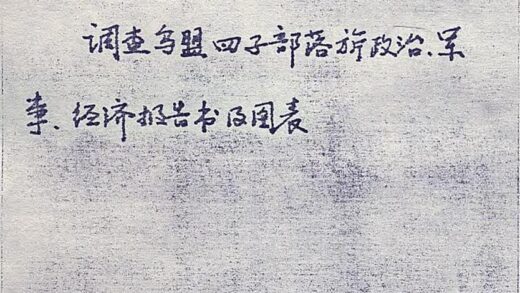 调查乌盟四子部落旗政治、军
事、经济报告书及图表